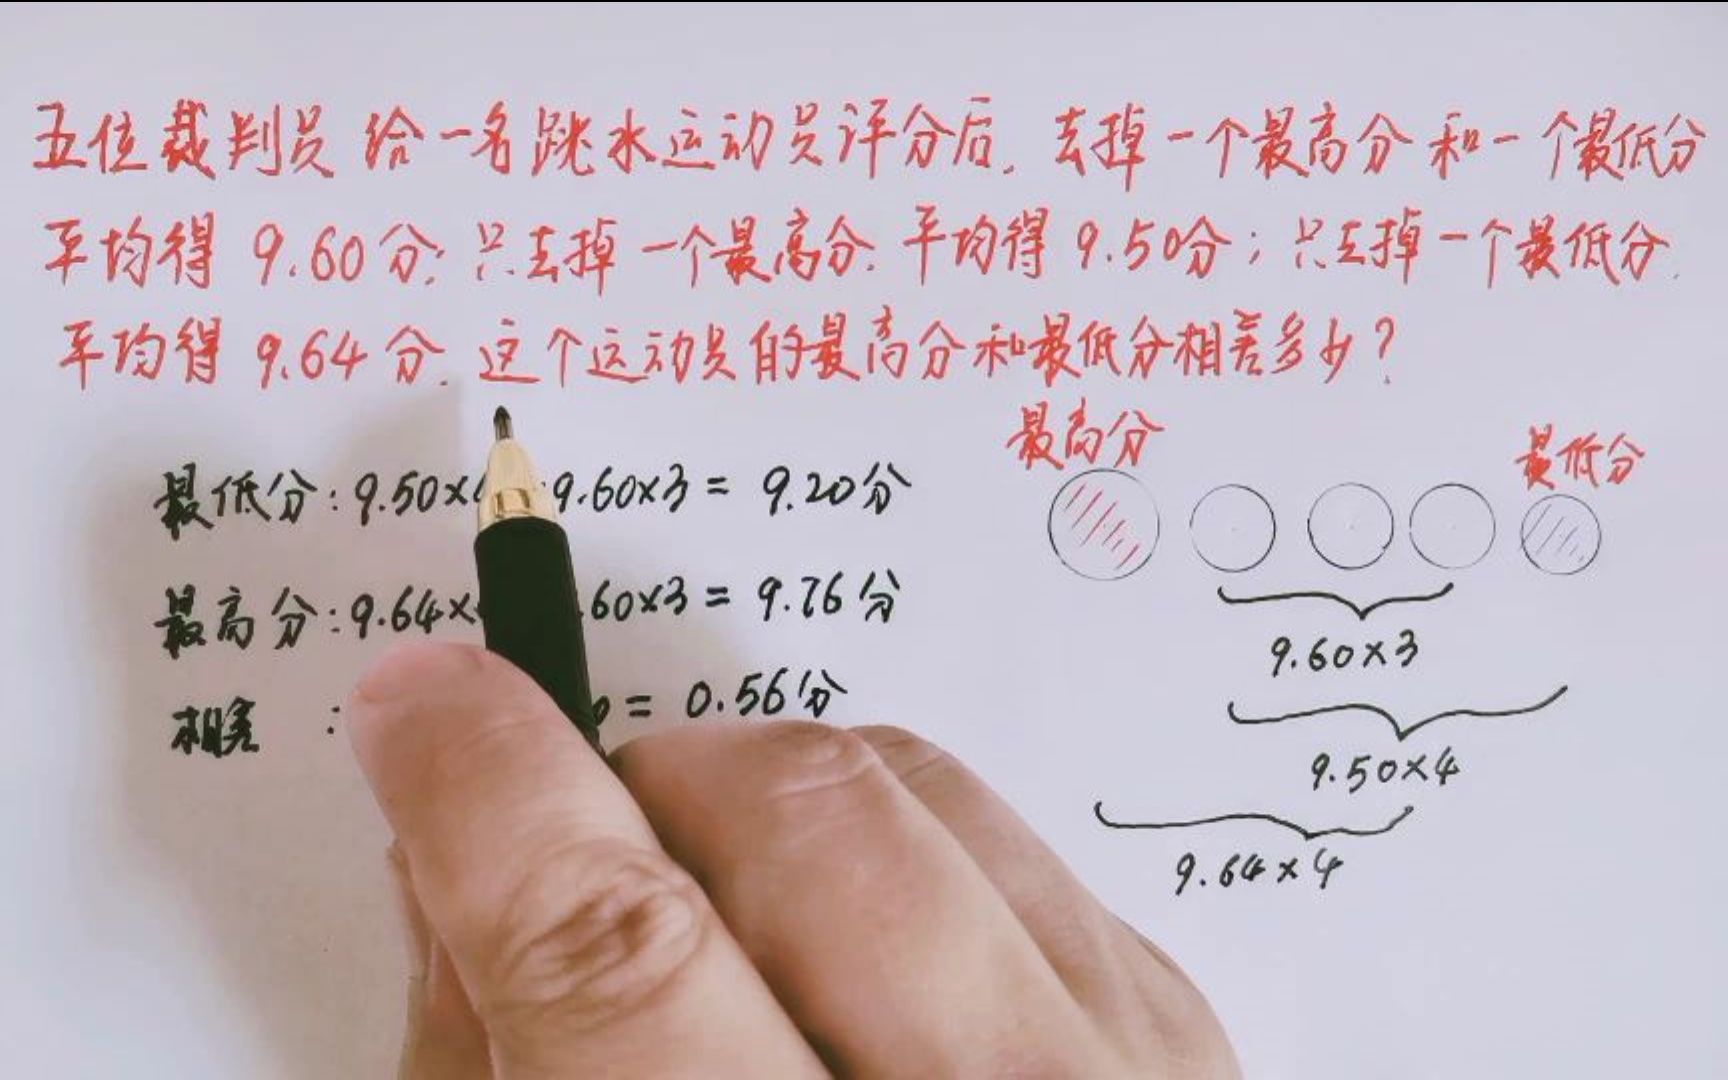 五位裁判员给一名跳水运动员评分后,去掉一个最高分和一个最低分
平均得9.60分;只去掉一个最高分.平均得9.50分;只去掉一个最低分.
平均得9.64分.这个运动员的最高分和最低分相差多少?
最低分:9.50× 9.60×3=9.20分
最高分:9.64× .60×3=9.76分
相差 : =0.56分
最高分
最低分
9.60×3
9.50×4
9.64×4